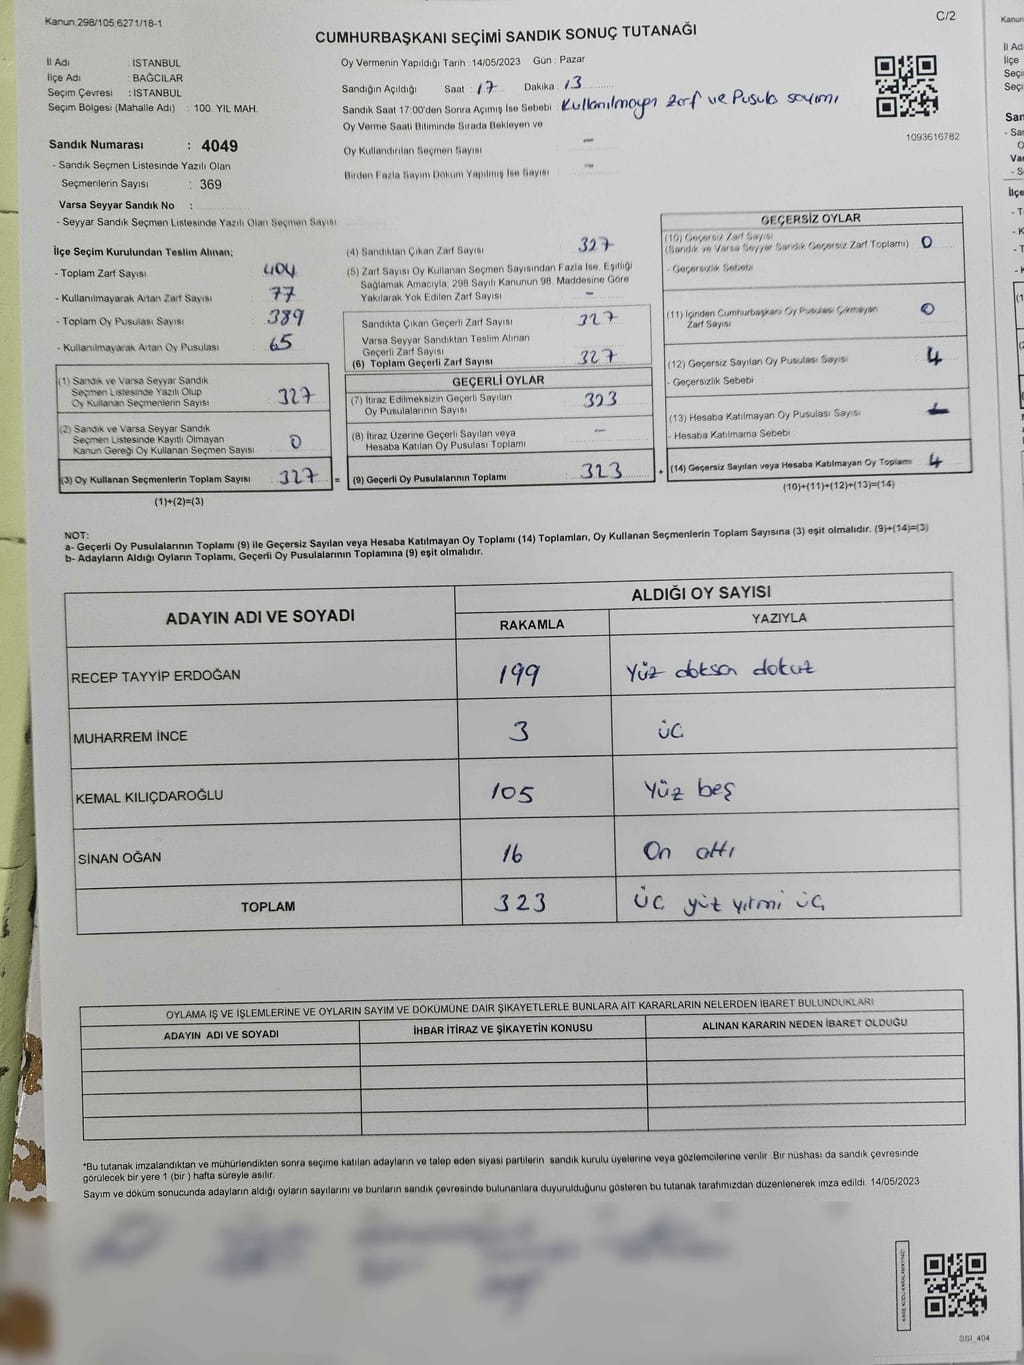 Kanun;298/105;6271/18-1
C/2
CUMHURBAŞKANI SEÇİMİ SANDIK SONUÇ TUTANAĞI
İl Adı : İSTANBUL
İlçe Adı : BAĞCILAR
Seçim Çevresi : İSTANBUL
Seçim Bölgesi (Mahalle Adı) : 100. YIL MAH.
Oy Vermenin Yapıldığı Tarih : 14/05/2023 Gün : Pazar
Sandığın Açıldığı Saat : 17 Dakika : 13
Sandık Saat 17:00'den Sonra Açımış İse Sebebi : Kullanılmayan zarf ve Pusula sayımı
Oy Verme Saati Bitiminde Sırada Bekleyen ve
Oy Kullandırılan Seçmen Sayısı : –
Birden Fazla Sayım Döküm Yapılmış İse Sayısı : –
1093616782
Sandık Numarası : 4049
- Sandık Seçmen Listesinde Yazılı Olan
Seçmenlerin Sayısı : 369
Varsa Seyyar Sandık No :
- Seyyar Sandık Seçmen Listesinde Yazılı Olan Seçmen Sayısı
İlçe Seçim Kurulundan Teslim Alınan;
- Toplam Zarf Sayısı : 404
- Kullanılmayarak Artan Zarf Sayısı : 77
- Toplam Oy Pusulası Sayısı : 389
- Kullanılmayarak Artan Oy Pusulası : 65
(1) Sandık ve Varsa Seyyar Sandık
Seçmen Listesinde Yazılı Olup
Oy Kullanan Seçmenlerin Sayısı : 327
(2) Sandık ve Varsa Seyyar Sandık
Seçmen Listesinde Kayıtlı Olmayan
Kanun Gereği Oy Kullanan Seçmen Sayısı : 0
(3) Oy Kullanan Seçmenlerin Toplam Sayısı : 327 =
(1)+(2)=(3)
(4) Sandıktan Çıkan Zarf Sayısı : 327
(5) Zarf Sayısı Oy Kullanan Seçmen Sayısından Fazla İse, Eşitliği
Sağlamak Amacıyla, 298 Sayılı Kanunun 98. Maddesine Göre
Yakılarak Yok Edilen Zarf Sayısı : –
Sandıkta Çıkan Geçerli Zarf Sayısı : 327
Varsa Seyyar Sandıktan Teslim Alınan
Geçerli Zarf Sayısı
(6) Toplam Geçerli Zarf Sayısı : 327
GEÇERLİ OYLAR
(7) İtiraz Edilmeksizin Geçerli Sayılan
Oy Pusulalarının Sayısı : 323
(8) İtiraz Üzerine Geçerli Sayılan veya
Hesaba Katılan Oy Pusulası Toplamı : –
(9) Geçerli Oy Pusulalarının Toplamı : 323 +
GEÇERSİZ OYLAR
(10) Geçersiz Zarf Sayısı
(Sandık ve Varsa Seyyar Sandık Geçersiz Zarf Toplamı) 0
- Geçersizlik Sebebi
(11) İçinden Cumhurbaşkanı Oy Pusulası Çıkmayan
Zarf Sayısı 0
(12) Geçersiz Sayılan Oy Pusulası Sayısı 4
- Geçersizlik Sebebi
(13) Hesaba Katılmayan Oy Pusulası Sayısı
- Hesaba Katılmama Sebebi
(14) Geçersiz Sayılan veya Hesaba Katılmayan Oy Toplamı 4
(10)+(11)+(12)+(13)=(14)
NOT:
a- Geçerli Oy Pusulalarının Toplamı (9) ile Geçersiz Sayılan veya Hesaba Katılmayan Oy Toplamı (14) Toplamları, Oy Kullanan Seçmenlerin Toplam Sayısına (3) eşit olmalıdır. (9)+(14)=(3)
b- Adayların Aldığı Oyların Toplamı, Geçerli Oy Pusulalarının Toplamına (9) eşit olmalıdır.
ADAYIN ADI VE SOYADI
ALDIĞI OY SAYISI
RAKAMLA YAZIYLA
RECEP TAYYİP ERDOĞAN 199 Yüz doksan dokuz
MUHARREM İNCE 3 üç
KEMAL KILIÇDAROĞLU 105 Yüz beş
SİNAN OĞAN 16 On altı
TOPLAM 323 üç yüz yirmi üç
OYLAMA İŞ VE İŞLEMLERİNE VE OYLARIN SAYIM VE DÖKÜMÜNE DAİR ŞİKAYETLERLE BUNLARA AİT KARARLARIN NELERDEN İBARET BULUNDUKLARI
ADAYIN ADI VE SOYADI İHBAR İTİRAZ VE ŞİKAYETİN KONUSU ALINAN KARARIN NEDEN İBARET OLDUĞU
*Bu tutanak imzalandıktan ve mühürlendikten sonra seçime katılan adayların ve talep eden siyasi partilerin sandık kurulu üyelerine veya gözlemcilerine verilir. Bir nüshası da sandık çevresinde
görülecek bir yere 1 (bir ) hafta süreyle asılır.
Sayım ve döküm sonucunda adayların aldığı oyların sayılarını ve bunların sandık çevresinde bulunanlara duyurulduğunu gösteren bu tutanak tarafımızdan düzenlenerek imza edildi. 14/05/2023
SSI_404